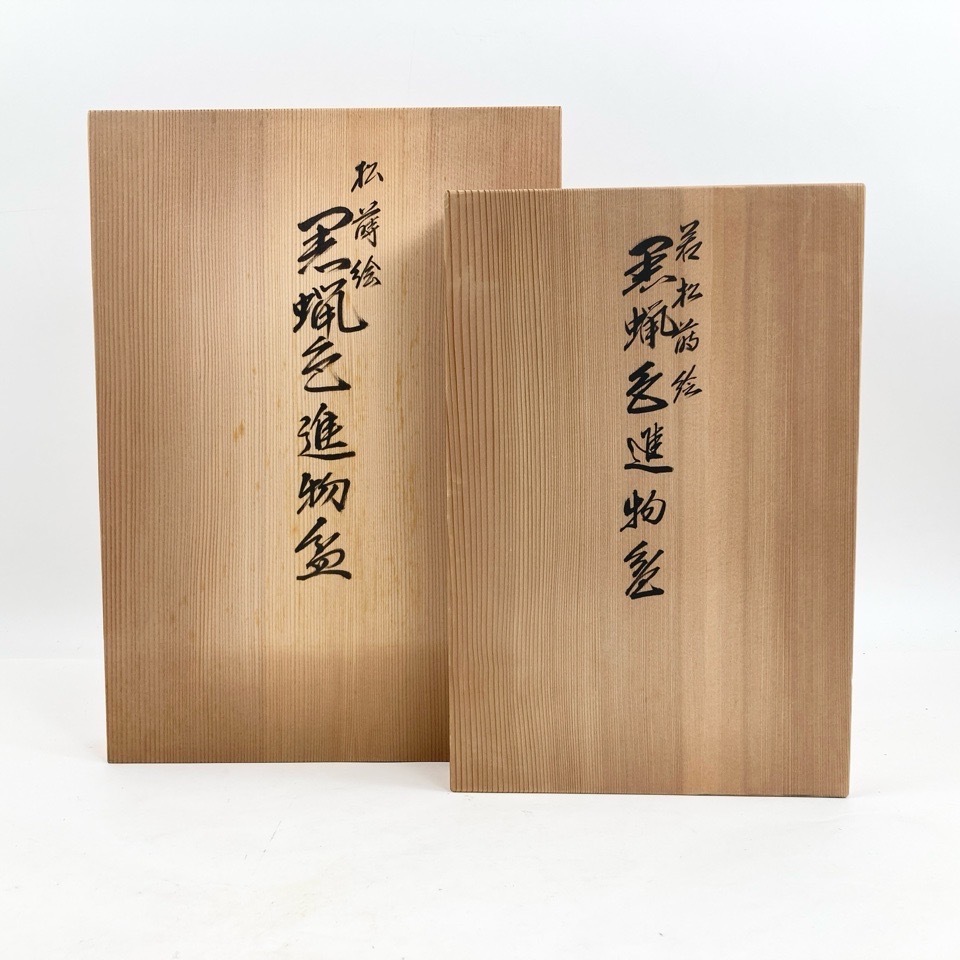 松蒔絵
黒蝋色進物盆
若松蒔絵
黒蝋色進物盆